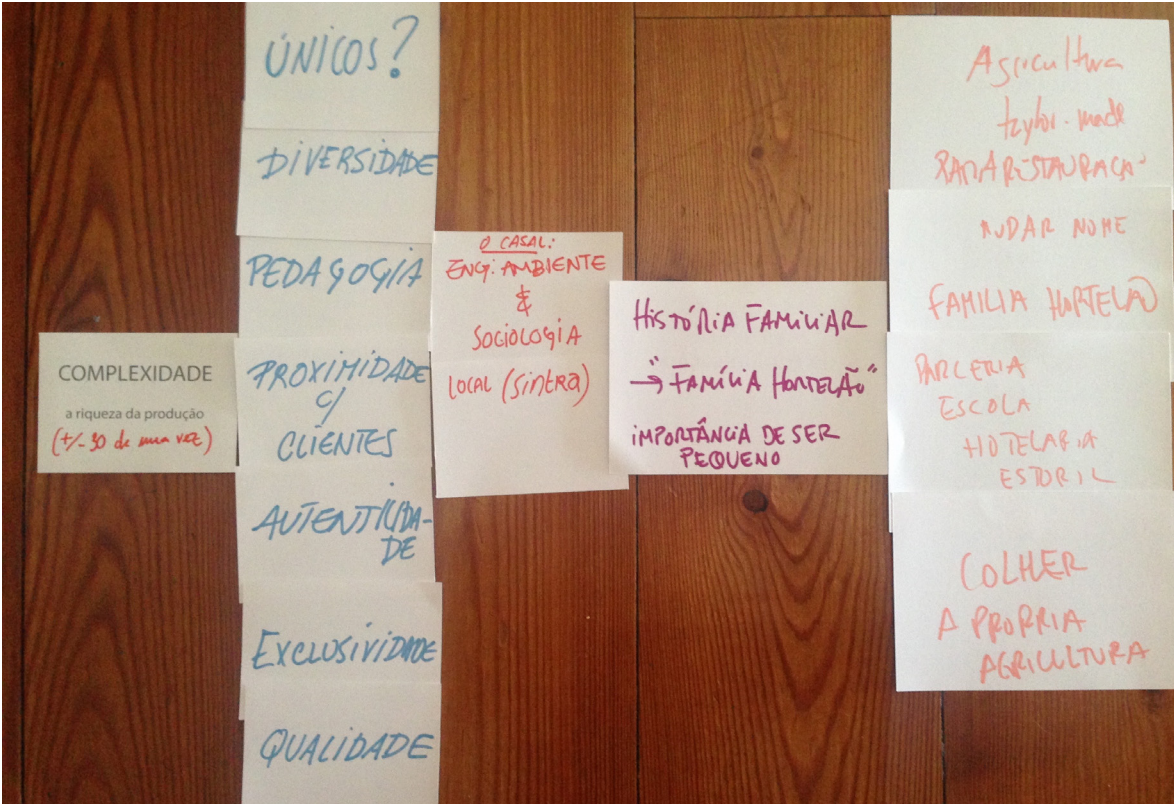 COMPLEXIDADE
a riqueza da produção
(+/- 30 de uma vez)
ÚNICOS?
DIVERSIDADE
PEDAGOGIA
PROXIMIDADE
C/
CLIENTES
AUTENTICIDA-
DE
EXCLUSIVIDADE
QUALIDADE
O CASAL:
ENG. AMBIENTE
&
SOCIOLOGIA
LOCAL (SINTRA)
HISTÓRIA FAMILIAR
→ "FAMÍLIA HORTELÃO"
IMPORTÂNCIA DE SER
PEQUENO
Agricultura
taylor-made
PARA RESTAURAÇÃO
MUDAR NOME
FAMILIA HORTELÃO
PARCERIA
ESCOLA
HOTELARIA
ESTORIL
COLHER
A PROPRIA
AGRICULTURA